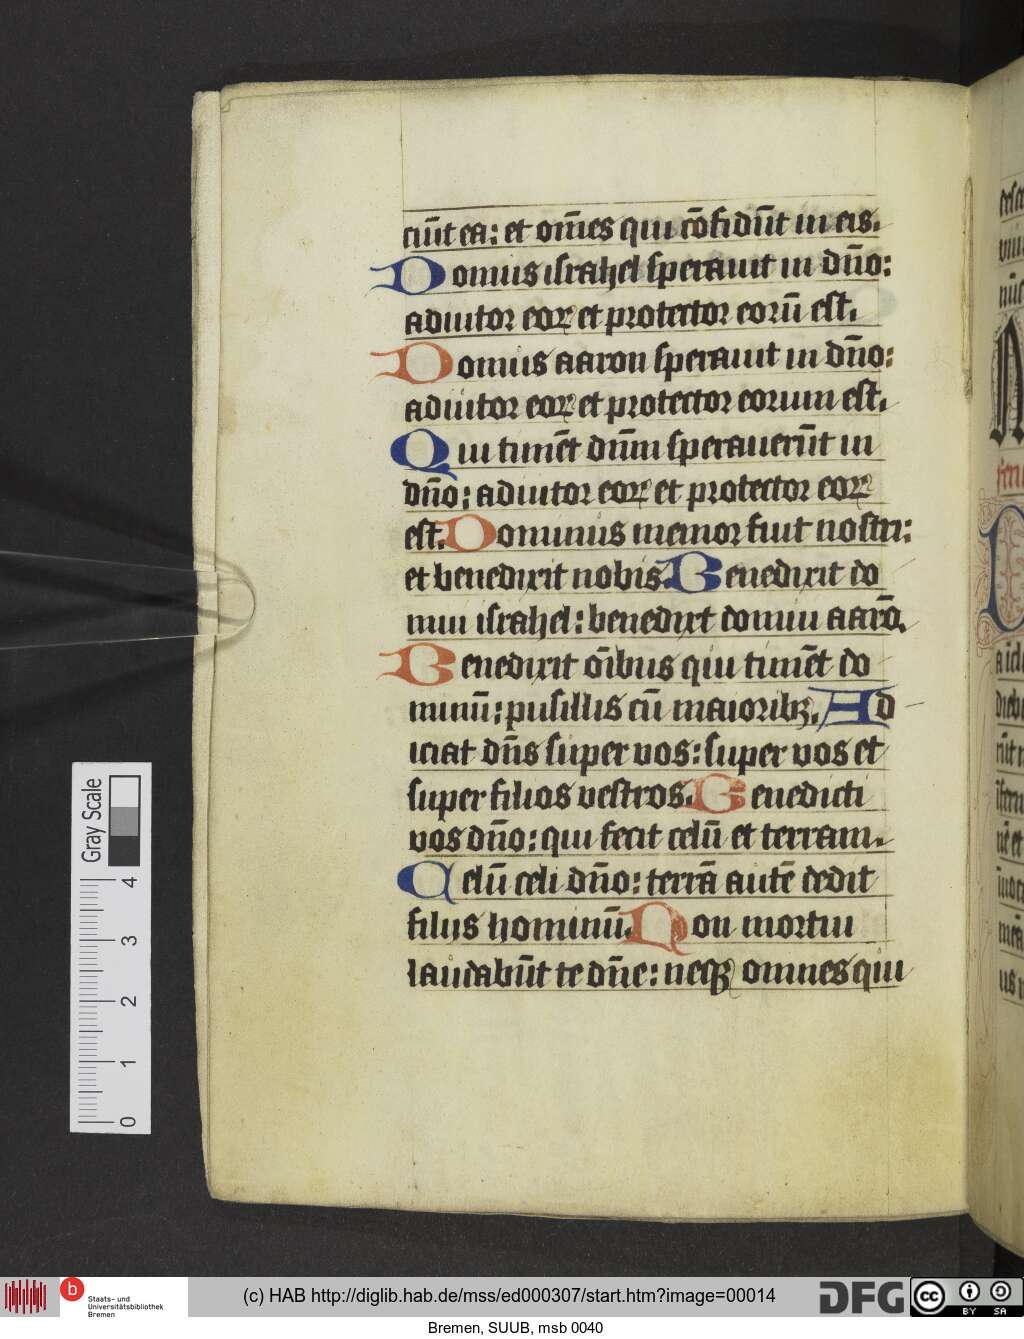 ciūt ea: et om̄es qui cōfidūt in eis.
Domus israhel sperauit in dn̄o:
adiutor eoꝝ et protector eorū est.
Domus aaron sperauit in dn̄o:
adiutor eoꝝ et protector eorum est.
Qui timēt dn̄m sperauerūt in
dn̄o: adiutor eoꝝ et protector eoꝝ
est. Dominus memor fuit nostri:
et benedixit nobis. Benedixit do
mui israhel: benedixt domui aarō.
Benedixit oībus qui timēt do
minū: pusillis cū maioribꝫ. Ad
iciat dn̄s super uos: super uos et
super filios vestros. Benedicti
vos dn̄o: qui fecit celū et terram.
Celū celi dn̄o: terrā autē dedit
filijs hominū. Non mortui
laudabūt te dn̄e: neqꝫ omnes qui
Gray Scale
4
3
2
1
0
b
Staats- und
Universitätsbibliothek
Bremen
(c) HAB http://diglib.hab.de/mss/ed000307/start.htm?image=00014
DFG
cc
BY SA
Bremen, SUUB, msb 0040